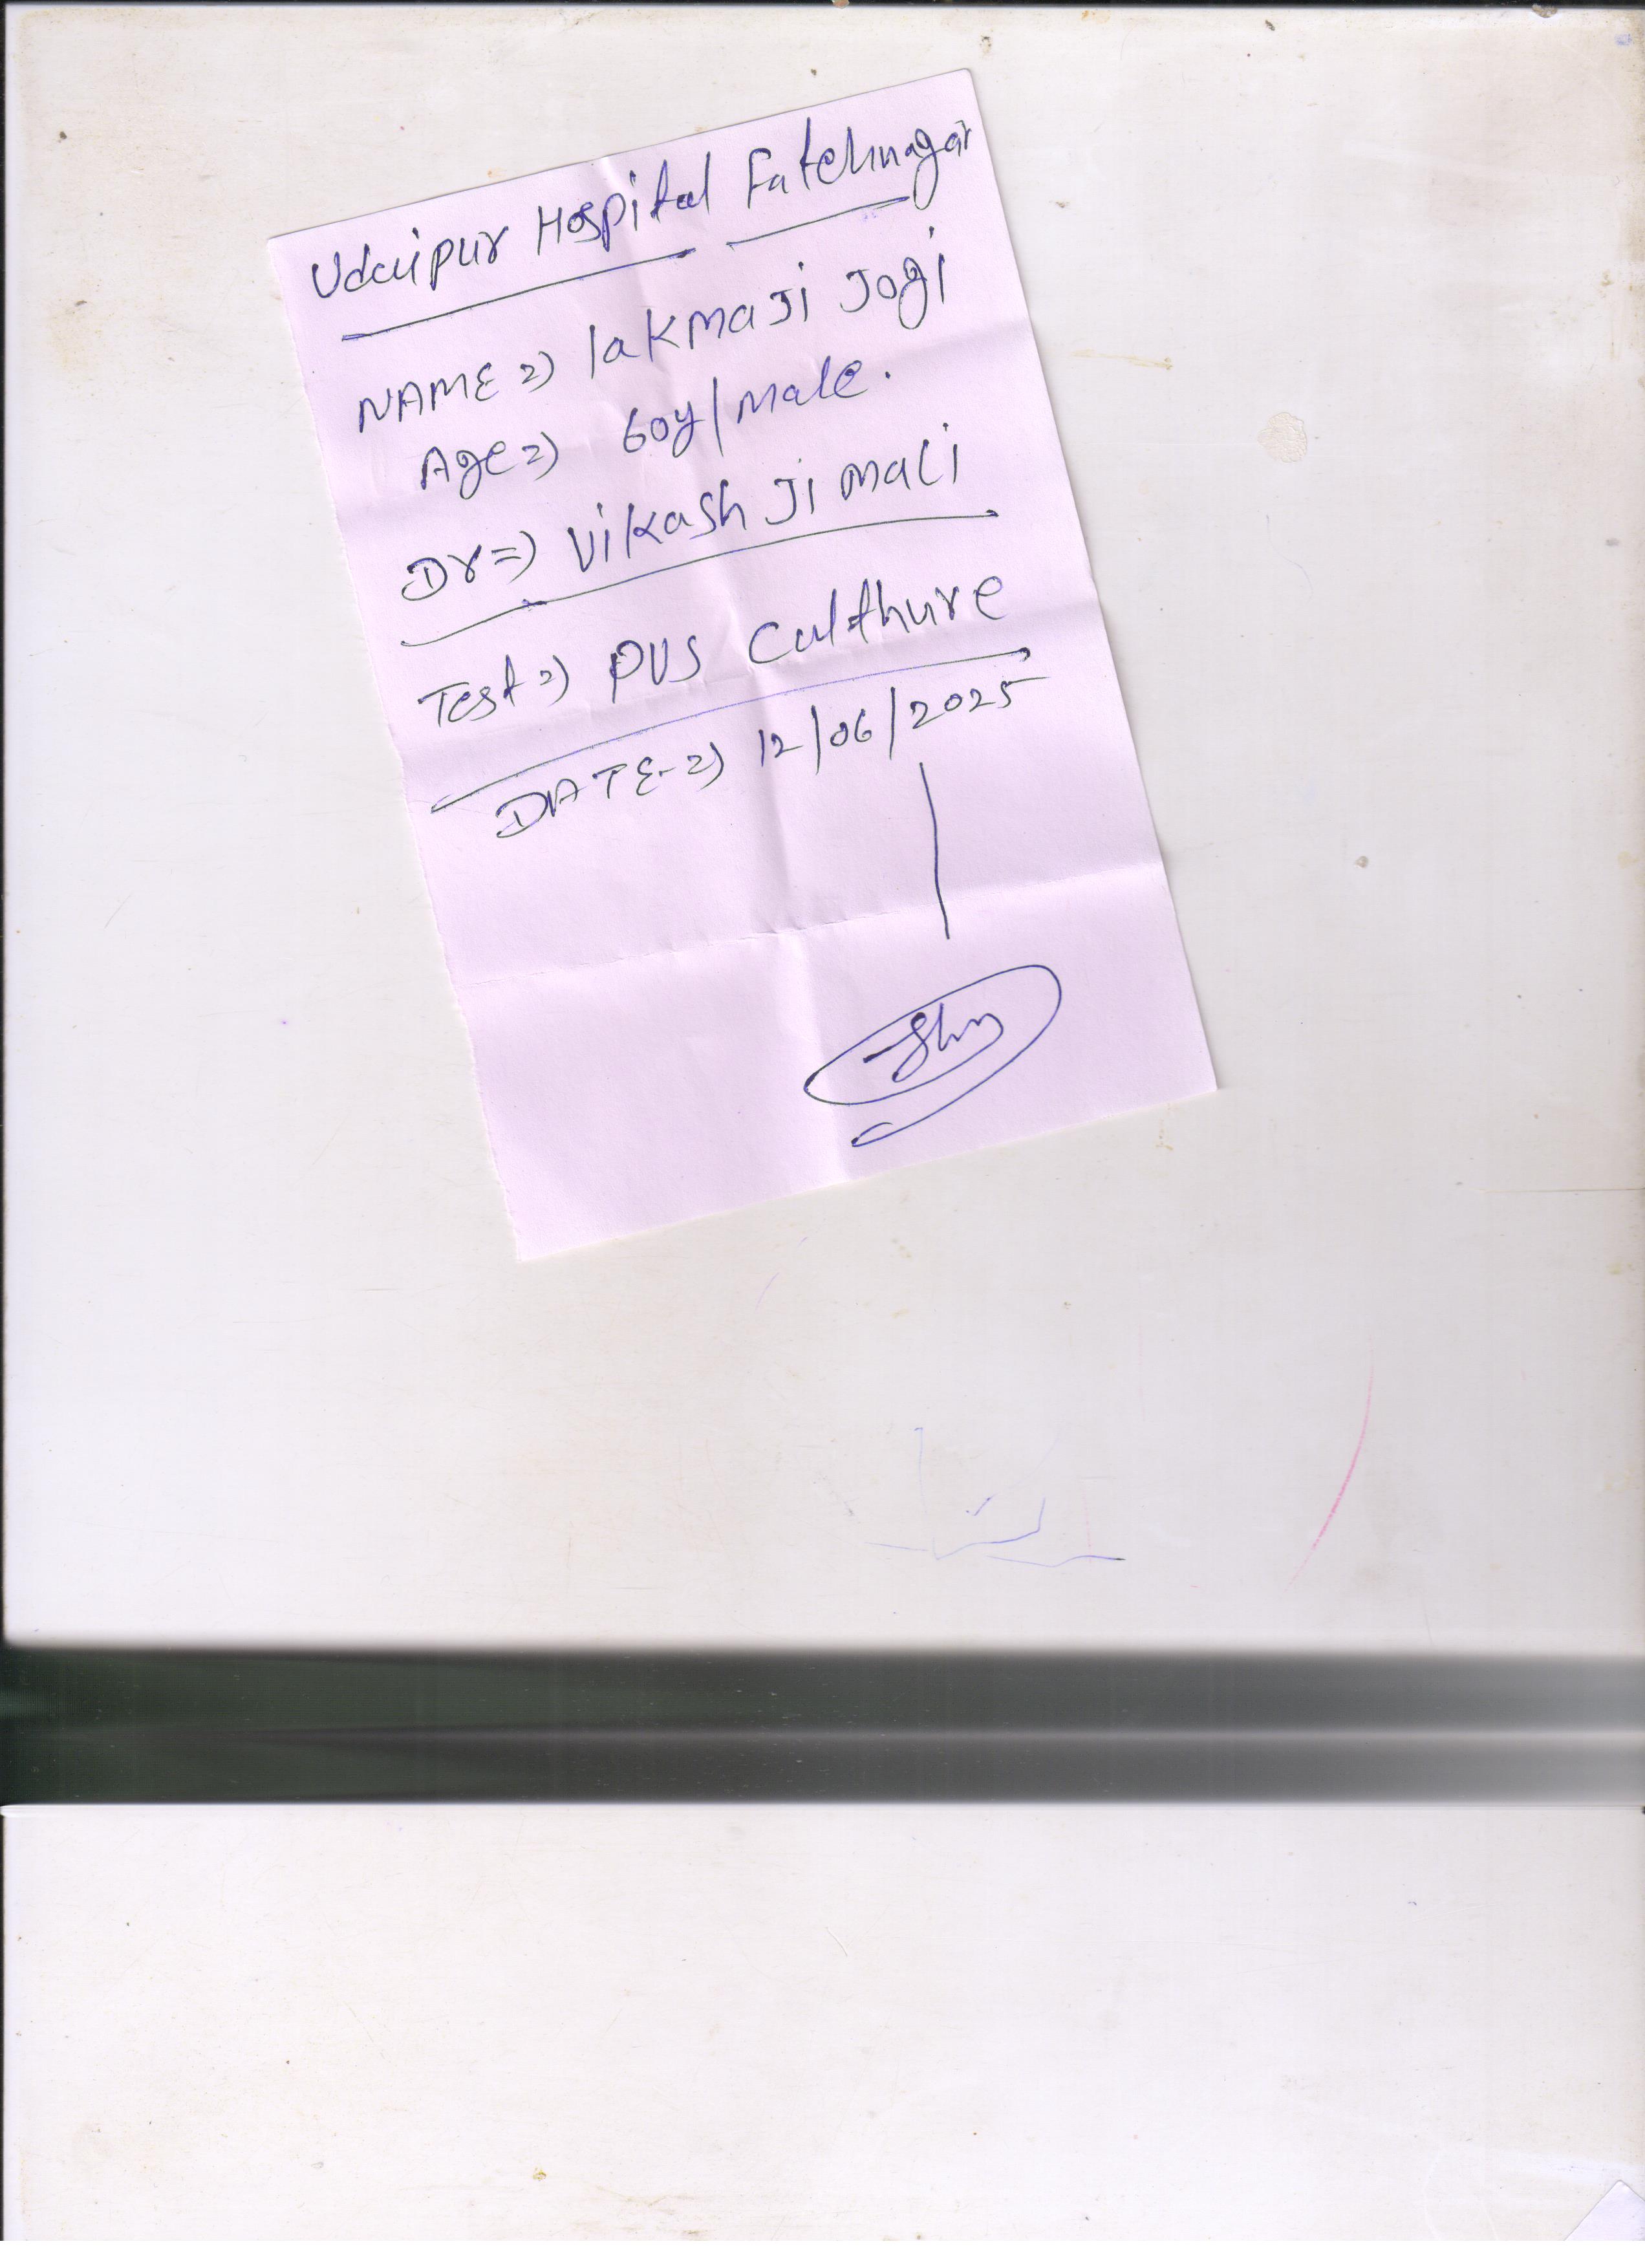 Udaipur Hospital Fatehnagar
NAME => lakmaji Jogi
Age => 60y/male.
Dr => Vikash Ji mali
Test => PUSCulthure
DATE - => 12/06/2025